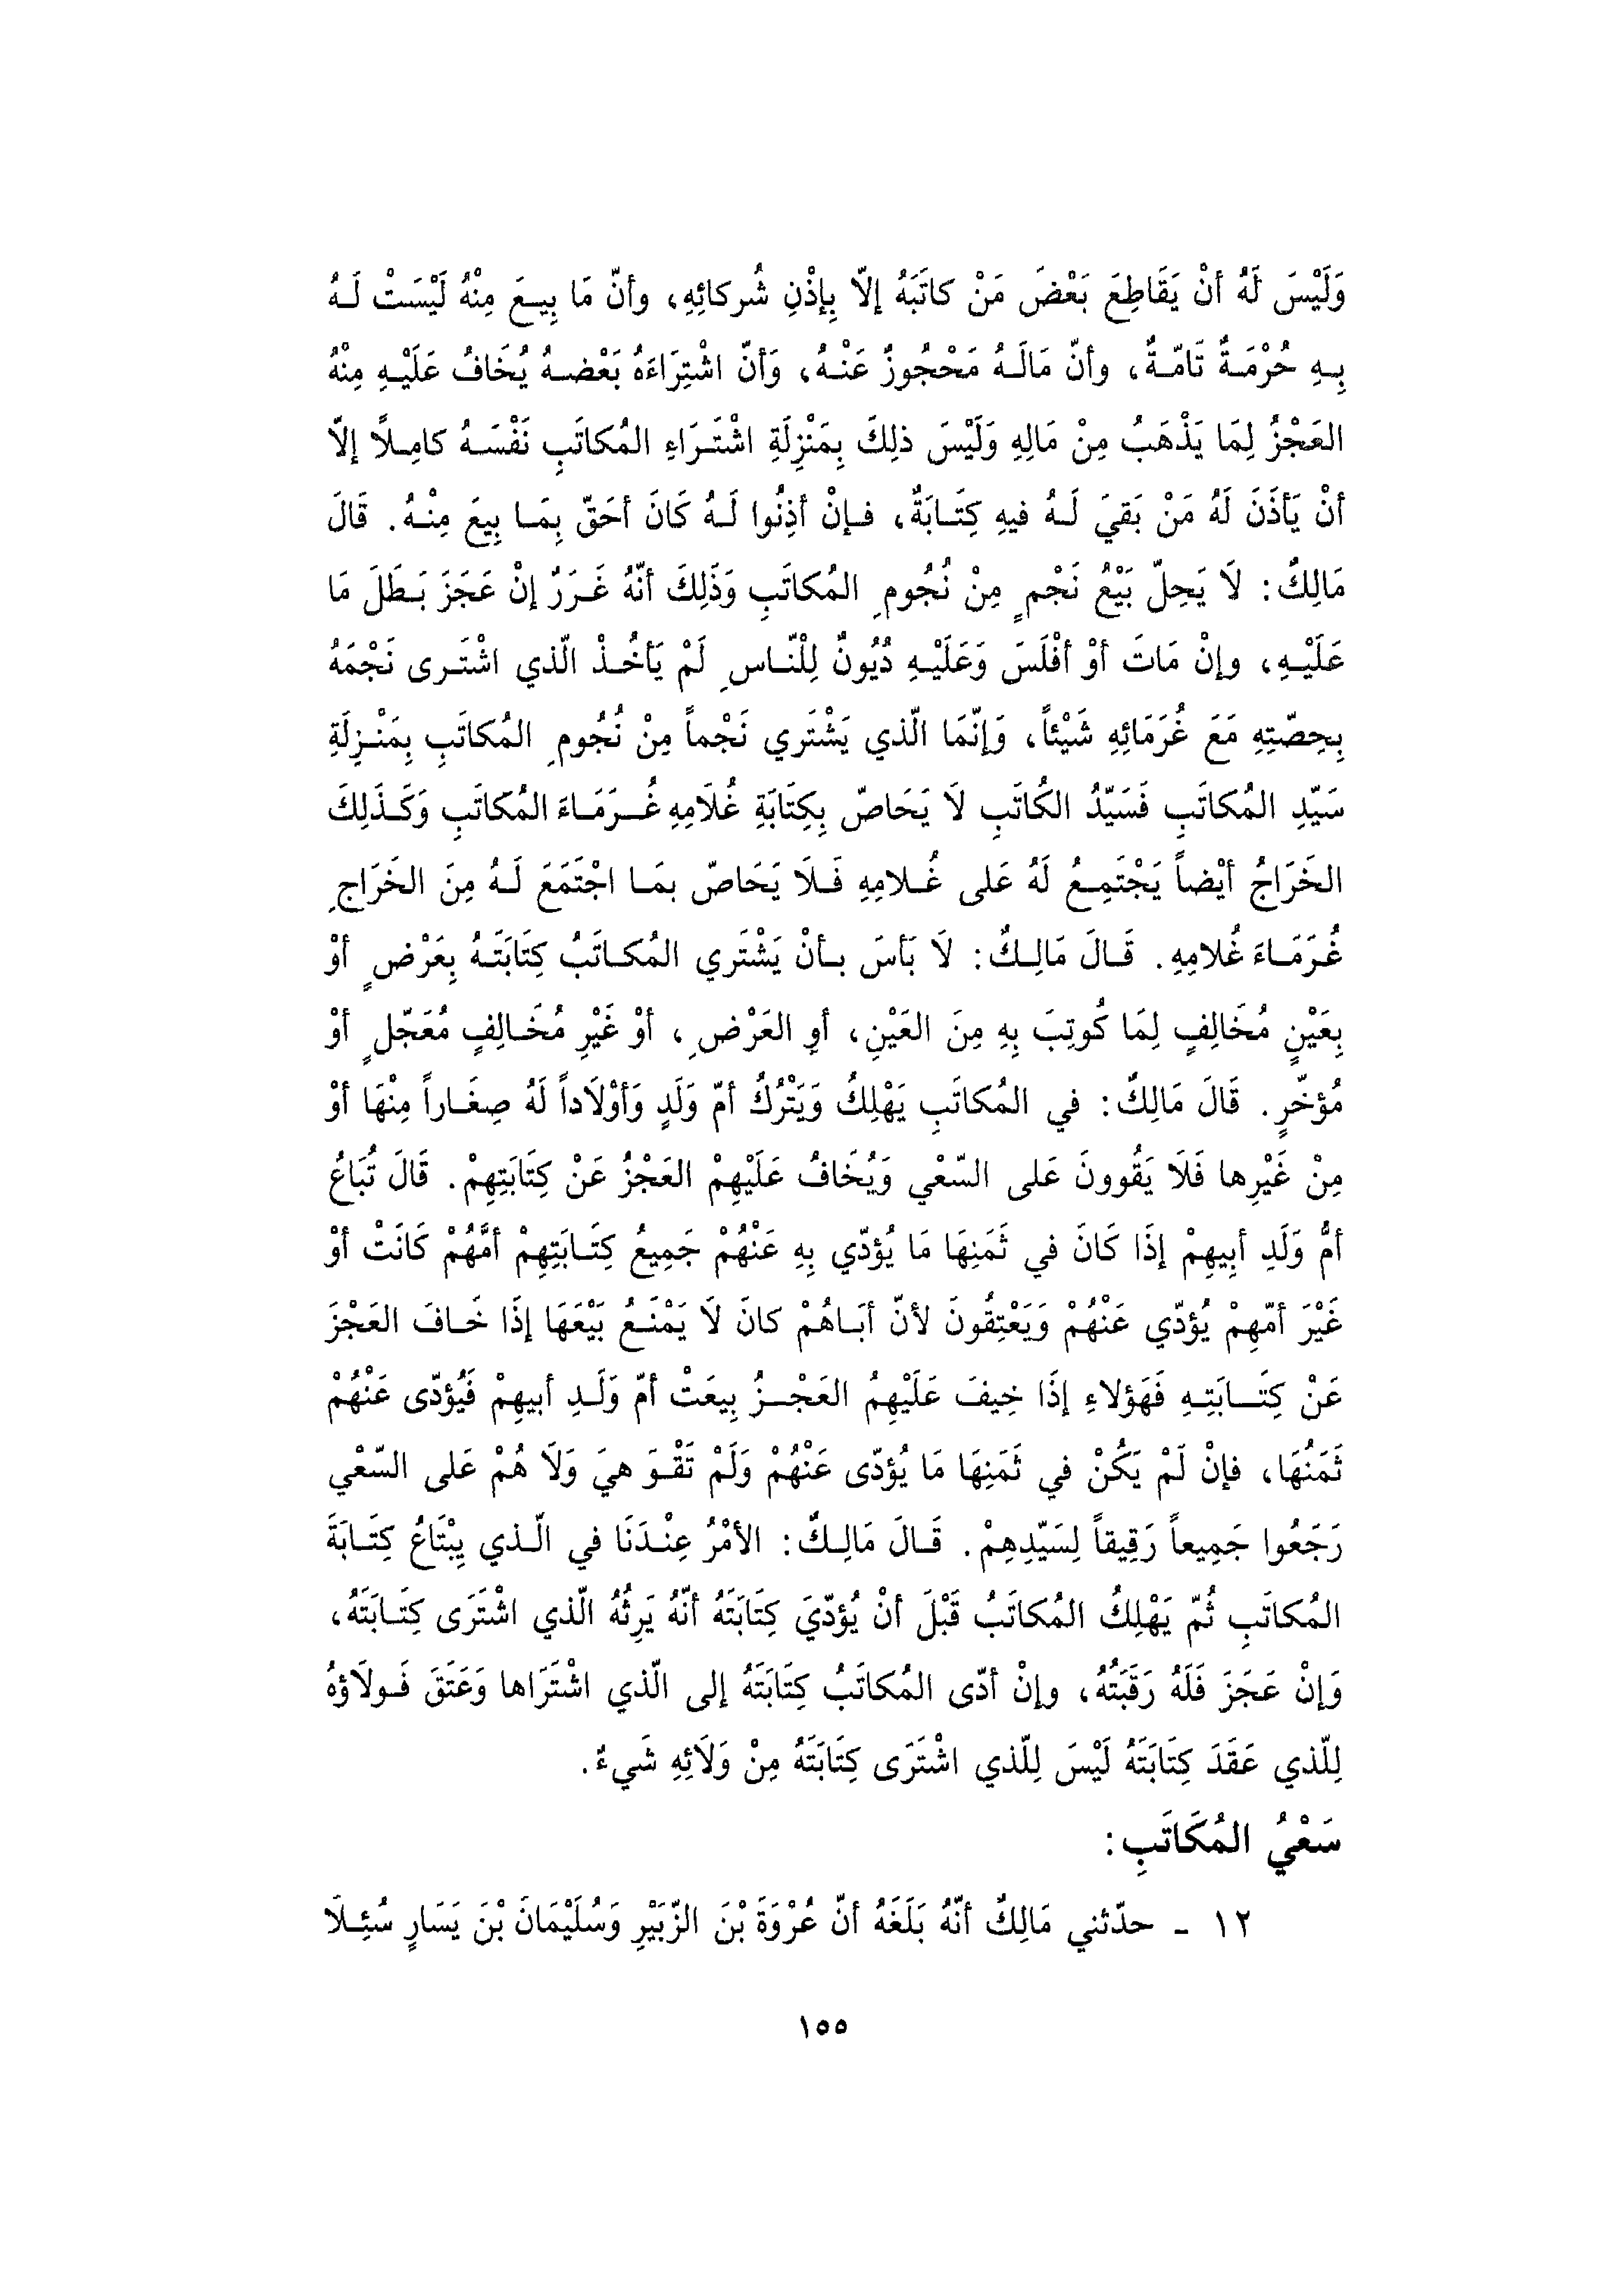 وَلَيْسَ لَهُ أنْ يَقَاطِعَ بَعْضَ مَنْ كاتَبَهُ إلاّ بِإذْنِ شُركائِهِ، وأنّ مَا بِيعَ مِنْهُ لَيْسَتْ لَهُ
بِهِ حُرْمَةٌ تَامّةٌ، وأنّ مَالَهُ مَحْجُوزٌ عَنْهُ، وَأنّ اشْتِرَاءَهُ بَعْضهُ يُخَافُ عَلَيْهِ مِنْهُ
العَجْزُ لِمَا يَذْهَبُ مِنْ مَالِهِ وَلَيْسَ ذلِكَ بِمَنْزِلَةِ اشْتَرَاءِ المُكاتَبِ نَفْسَهُ كامِلاً إلاّ
أنْ يَأذَنَ لَهُ مَنْ بَقيَ لَهُ فيهِ كِتَابَةٌ، فإنْ أذِنُوا لَهُ كَانَ أحَقّ بِمَا بِيعَ مِنْهُ. قَالَ
مَالِكٌ: لاَ يَحِلّ بَيْعُ نَجْمٍ مِنْ نُجُومِ المُكاتَبِ وَذَلِكَ أنّهُ غَرَرٌ إنْ عَجَزَ بَطَلَ مَا
عَلَيْهِ، وإنْ مَاتَ أوْ أفْلَسَ وَعَلَيْهِ دُيُونٌ لِلْنّاسِ لَمْ يَأخُذْ الّذي اشْتَرى نَجْمَهُ
بِحِصّتِهِ مَعَ غُرَمَائِهِ شَيْئاً، وَإنّمَا الّذي يَشْتَري نَجْماً مِنْ نُجُومِ المُكاتَبِ بِمَنْزِلَةِ
سَيّدِ المُكاتَبِ فَسَيّدُ الكُاتَبِ لاَ يَحَاصّ بِكِتَابَةِ غُلَامِهِ غُرَمَاءَ المُكَاتَبِ وَكَذَلِكَ
الخَرَاجُ أيْضاً يَجْتَمِعُ لَهُ عَلى غُلامِهِ فَلاَ يَحَاصّ بمَا اجْتَمَعَ لَهُ مِنَ الخَرَاجِ
غُرَمَاءَ غُلامِهِ. قَالَ مَالِكٌ: لاَ بَأسَ بأنْ يَشْتَري المُكاتَبُ كِتَابَتَهُ بِعَرْضٍ أوْ
بِعَيْنٍ مُخَالِفٍ لِمَا كُوتِبَ بِهِ مِنَ العَيْنِ، أوِ العَرْضِ، أوْ غَيْرِ مُخَالِفٍ مُعَجّلٍ أوْ
مُؤخّرٍ. قَالَ مَالِكٌ: في المُكاتَبِ يَهْلِكُ وَيَتْرُكُ أمّ وَلَدٍ وَأوْلَاداً لَهُ صِغَاراً مِنْهَا أوْ
مِنْ غَيْرِها فَلَا يَقُوونَ عَلى السّعْي وَيُخَافُ عَلَيْهِمْ العَجْزُ عَنْ كِتَابَتِهِمْ. قَالَ تُبَاعُ
أمُّ وَلَدِ أبِيهِمْ إذَا كَانَ في ثَمَنِهَا مَا يُؤدّي بِهِ عَنْهُمْ جَمِيعُ كِتَابَتِهِمْ أمَّهُمْ كَانَتْ أوْ
غَيْرَ أمّهِمْ يُؤدّي عَنْهُمْ وَيَعْتِقُونَ لأنّ أبَاهُمْ كانَ لَا يَمْنَعُ بَيْعَهَا إذَا خَافَ العَجْزَ
عَنْ كِتَابَتِهِ فَهَؤلاءِ إذَا خِيفَ عَلَيْهِمُ العَجْزُ بِيعَتْ أمّ وَلَدِ أبيهِمْ فَيُؤدّى عَنْهُمْ
ثَمَنُهَا، فإنْ لَمْ يَكُنْ في ثَمَنِهَا مَا يُؤدّى عَنْهُمْ وَلَمْ تَقْوَ هيَ وَلَا هُمْ عَلى السّعْي
رَجَعُوا جَمِيعاً رَقِيقاً لِسَيّدِهِمْ. قَالَ مَالِكٌ: الأمْرُ عِنْدَنَا في الّذي يِبْتَاعُ كِتَابَةَ
المُكاتَبِ ثُمّ يَهْلِكُ المُكاتَبُ قَبْلَ أنْ يُؤدّيَ كِتَابَتَهُ أنّهُ يَرِثُهُ الّذي اشْتَرَى كِتَابَتَهُ،
وَإنْ عَجَزَ فَلَهُ رَقَبَتُهُ، وإنْ أدّى المُكاتَبُ كِتَابَتَهُ إلى الّذي اشْتَرَاها وَعَتَقَ فَولَاؤهُ
لِلّذي عَقَدَ كِتَابَتَهُ لَيْسَ لِلّذي اشْتَرَى كِتَابَتَهُ مِنْ وَلَائِهِ شَيءٌ.
سَعْيُ المُكَاتَبِ:
١٢ - حدّثني مَالِكٌ أنّهُ بَلَغَهُ أنّ عُرْوَةَ بْنَ الزّبَيْرِ وَسُلَيْمَانَ بْنَ يَسَارٍ سُئِلَا
١٥٥